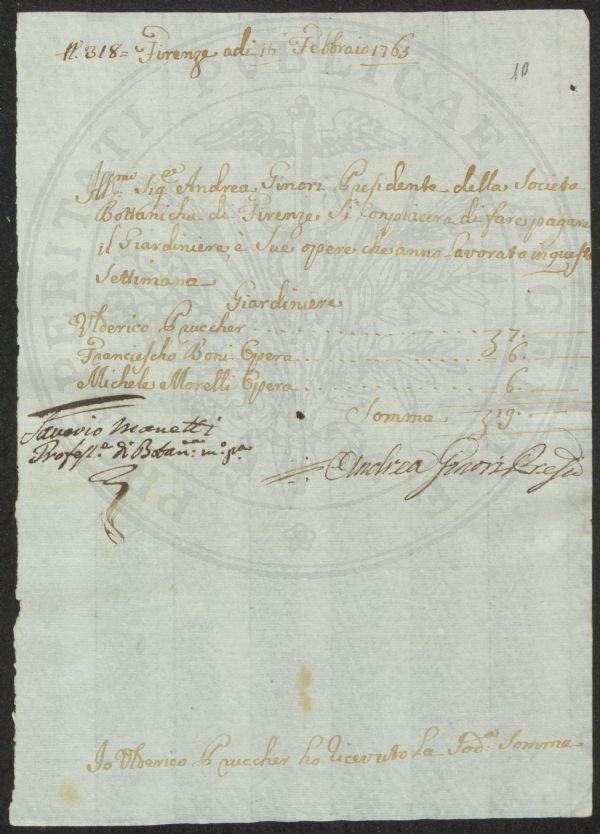 N. 318 = Firenze adi 16 Febbraio 1763
10
Ill:mo Sig:re Andrea Ginori Presidente della Societa
Bottanicha di Firenze, Si Conpiacera di fare pagare
il Giardiniere, è Sue opere che anno Lavorato in questa
Settimana
Giardiniere
Ulderico Pruccher . . . . . 7. —
Franciescho Boni Opera . . . . . 6. —
Michele Morelli Opera . . . . . 6. —
Somma 19. —
Saverio Manetti
Profess.e di Botan:ca m:o p:a
Andrea Ginori Presid
Io Ulderico Pruccher ho ricevuto La Sod:a Somma
PERITATI PUBLICAE